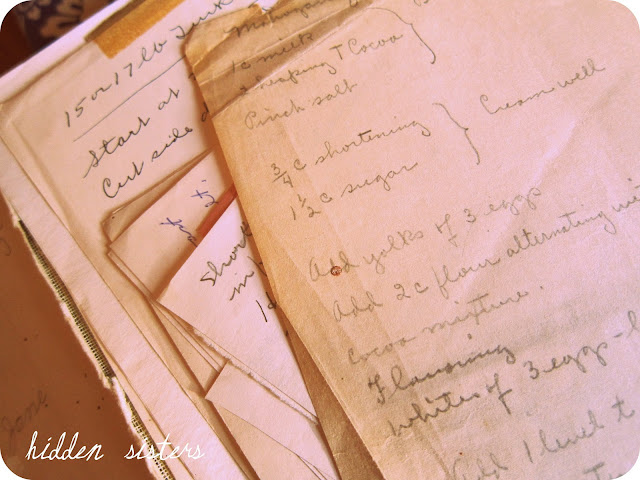 15 or 17 lb
Start at
Cut side
Short
in
1c milk
3 heaping T Cocoa
Pinch salt
3/4 c shortening
1 1/2 c sugar
Cream well
Add yolks of 3 eggs
Add 2 c flour alternating
cocoa mixture.
Flavoring
Whites of 3 eggs -
Add 1 level t
Jane
hidden sisters